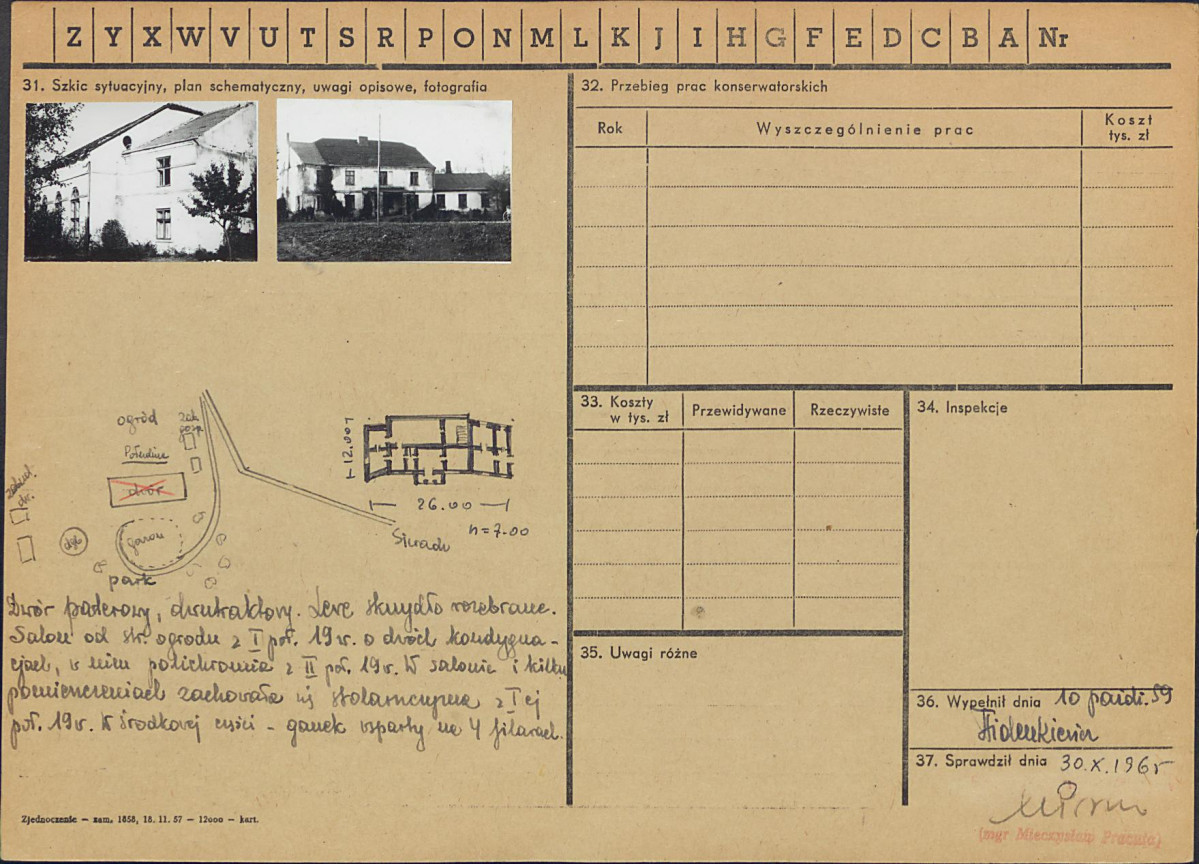 Z Y X W V U T S R P O N M L K J I H G F E D C B A Nr
31. Szkic sytuacyjny, plan schematyczny, uwagi opisowe, fotografia
ogród
zab.
gosp.
dwór
park
12.00
26.00
h=7.00
Dwór parterowy, dwutraktowy. Lewe skrzydło rozebrane.
Salon od str. ogrodu z I poł. 19 w. o dwóch kondygna-
cjach, w nim polichromia z II poł. 19 w. W salonie i kilku
pomieszczeniach zachowała się stolarszczyzna z I ej
poł. 19 w. W środkowej części - ganek wsparty na 4 filarach.
Zjednoczenie — zam. 1858, 18. 11. 57 — 12000 — kart.
32. Przebieg prac konserwatorskich
Rok
Wyszczególnienie prac
Koszt
tys. zł
33. Koszty
w tys. zł
Przewidywane
Rzeczywiste
34. Inspekcje
35. Uwagi różne
36. Wypełnił dnia 10 paźdź. 59
37. Sprawdził dnia 30.X.1965
(mgr Mieczysław